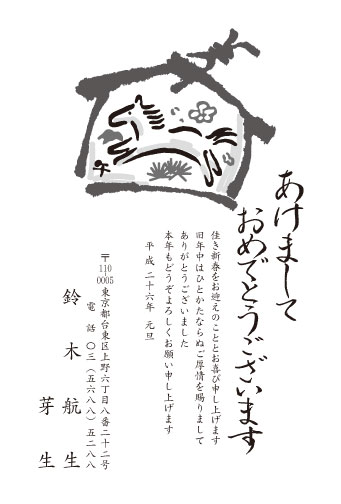 あけまして
おめでとうございます
佳き新春をお迎えのこととお喜び申し上げます
旧年中はひとかたならぬご厚情を賜りまして
ありがとうございました
本年もどうぞよろしくお願い申し上げます
平成二十六年 元旦
〒110
0005
東京都台東区上野六丁目八番二十二号
電話 〇三(五六八八)五二八八
鈴木航生
芽生